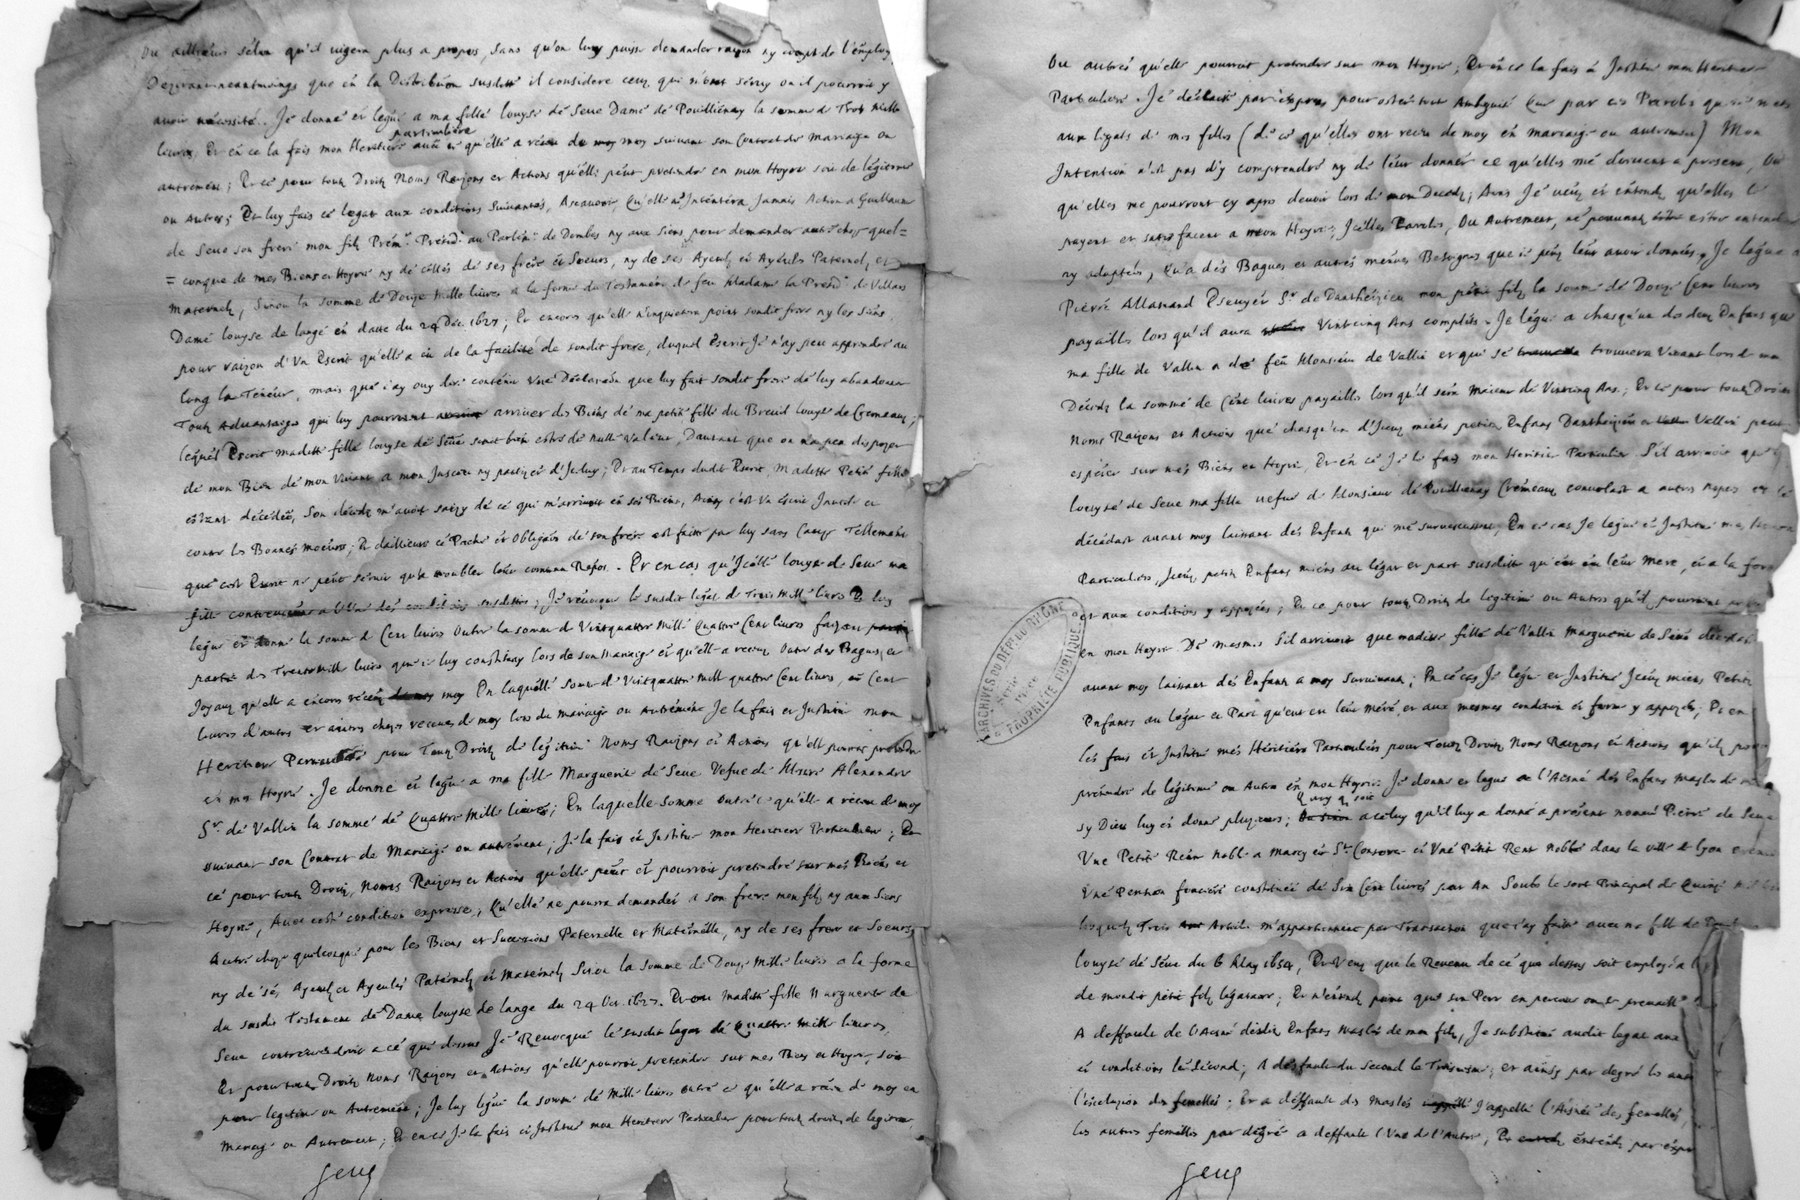 Ou ailleurs selon qu'il jugera plus a propos, sans qu'on luy puisse demander raison ny compte de l'employ
Desirant neantmoings que en la Distribution susditte il considere ceux qui m'ont servy ou il pourroit y
avoir necessité. Je donne et legue a ma fille louyse de Seve Dame de Pouillenay la somme de Trois Mille
particuliere
livres, Et en ce la fais mon Heritiere avec ce qu'elle a receu de moy suivant son Contract de Mariaige ou
autrement; Et ce pour tout Droitz Noms Raizons et Actions qu'elle peut pretendre en mon Hoyrie soit de légitime
ou Autres; Et luy fais ce legat aux conditions suivantes, Ascavoir, Qu'elle n'Intentera Jamais Action a Guillaume
de Seve son frere mon filz Prem.r Présid.t au Parlem.t de Dombes ny aux siens pour demander autre chose quel=
=conque de mes Biens et Hoyrie ny de celles de ses frere et Soeurs, ny de ses Ayeulz et Ayeules Paternelz et
Maternelz, Sinon la somme de Douze Mille livres a la forme du Testament de feu Madame la Présid.te de Villars
Dame louyse de langes en datte du 24 Dec. 1627; Et encors qu'elle n'inquietera point sondit frere ny les siens
pour raizon d'Un Escrit qu'elle a eu de la facilité de sondit frere, duquel Escrit Je n'ay peu apprendre au
long la Teneur, mais que j'ay ouy dire contenir Une Declaraon que luy fait sondit frere de luy abandonner
Toutz Advantaiges qui luy pourroient arriver des Biens de ma petite fille du Breuil louyse de Cremeaux;
lequel Escrit maditte fille louyse de Seve scait bien estre de nulle valeur, Dautant que on n'a peu disposer
de mon Bien de mon Vivant a mon Insceu ny partie d'Iceluy; Et au Temps dudit Escrit Maditte Petite fille
estant décédée, Son décedz m'avoit saizy de ce qui m'arrivoit en ses Biens, Ainsy c'est Un Escrit Inutile et
contre les Bonnes moeurs; Et d'ailleurs ce Pache et Obligaon de son frere est faitte par luy sans Cause Tellement
que cest Escrit ne peut servir qu'a troubler leur comun Repos. Et en cas qu'Icelle louyse de Seve ma
fille contrevienne a l'Une des conditions susdittes; Je revocque le susdit legat de Trois Mille livres Et luy
legue et donne la somme de Cent livres Outre la somme de Vintquattre Mille Quattre Cent livres faizant
partie des Trente Mille livres que je luy constituay lors de son Mariaige et qu'elle a receu Outre des Bagues et
Joyaux qu'elle a encors receu de moy En laquelle somme de Vintquattre Mille quattre Cent livres, et Cent
livres d'autre et autres choses receues de moy lors du mariaige ou Autrement Je la fais et Institue mon
Heritiere Particuliere pour Toutz Droitz de légitime Noms Raizons et Actions qu'elle pourroit pretendre
en mon Hoyrie. Je donne et legue a ma fille Marguerite de Seve Vefve de Messire Alexandre
S.r de Vallin la somme de Quattre Mille livres; En laquelle somme outre ce qu'elle a receu de moy
suivant son Contrat de Mariaige ou autrement; Je la fais et Institue mon Heritiere Particuliere; Et
ce pour toutz Droitz, Noms Raizons et Actions qu'elle peut et pourroit pretendre sur mes Biens et
Hoyrie, Avec ceste condition expresse, Qu'elle ne pourra demander a son frere mon filz ny aux Siens
Autre chose quelconque pour les Biens et Successions Paternelle et Maternelle, ny de ses frere et Soeurs
ny de ses Ayeulz et Ayeules Paternelz et Maternelz Sinon la somme de Douze Mille livres a la forme
du susdit Testament de Dame louyse de lange du 24 Dec. 1627. Et ou Maditte fille Marguerite de
Seve contreviendroit a ce que dessus Je Revocque le susdit legat de Quattre Mille livres,
Et pour toutz Droitz Noms Raizons et Actions qu'elle pourroit pretendre sur mes Biens et Hoyrie, soit
pour legitime ou Autrement; Je luy legue la somme de Mille livres outre ce qu'elle a receu de moy en
Mariage ou Autrement; Et en ce Je la fais et Institue mon Heritiere Particuliere pour tout droitz de legitime
Seve
Ou autres qu'elle pourroit pretendre sur mon Hoyrie, Et en ce la fais et Institue mon Heritiere
Particuliere. Je declaire par expres pour oster tout Ambiguité Que par ces Paroles qu'
aux legats de mes filles (de ce qu'elles ont receu de moy en mariaige ou autrement) Mon
Intention n'est pas d'y comprendre ny de leur donner ce qu'elles me doivent a present, Ou
qu'elles me pourront cy apres devoir lors de mon Decedz; Ains Je veux et entendz qu'elles le
payent et satisfacent a mon Hoyrie; Icelles Paroles, Ou Autrement, ne pouvant estre entendues
ny adaptées, Qu'a des Bagues et autres menues Besognes que je peux leur avoir données. Je legue a
Pierre Allemand Escuyer S.r de Dantheizieu mon petit filz la somme de Douze Cent livres
payables lors qu'il aura Vintcinq Ans complets. Je legue a chasqu'un des deux Enfans que
ma fille de Vallin a de feu Monsieur de Vallin et qui se trouvera Vivant lors de mon
Décedz la somme de Cent livres payables lors qu'il sera Maieur de Vintcinq Ans; Et ce pour toutz Droitz
Noms Raizons et Actions que chasqu'un d'Iceux miens petitz Enfans Dantheizieu et Vallin peut
espérer sur mes Biens et Hoyrie, Et en ce Je le fais mon Heritier Particulier S'il arrivoit que
louyse de Seve ma fille vefve de Monsieur de Pouillenay Cremeaux convolast a autres nopces et
décédast avant moy laissant des Enfants qui me survesquissent, En ce cas Je legue et Institue mes
Particuliers, Iceux petitz Enfans miens au légat et part susditte qu'eut eu leur Mere, et a la forme
et aux conditions y apposées; Et ce pour toutz Droitz de legitime ou Autres qu'ilz pourroient
en mon Hoyrie De mesmes S'il arrivoit que maditte fille de Vallin Marguerite de Seve decedast
avant moy laissant des Enfants a moy Survivants; En ce cas Je legue et Institue Iceux miens Petitz
Enfants au légat et Part qu'eut eu leur Mere, et aux mesmes conditions et forme y apposées; Et en
les fais et Institue mes Héritiers Particuliers pour Toutz Droitz Noms Raizons et Actions qu'ilz
prétendre de légitime ou Autre en mon Hoyrie. Je donne et legue a l'Aisné des Enfans Masles de
sy Dieu luy en donne plusieurs; a celuy qu'il luy a donné a présent nommé Pierre de Seve
Une Petite Rente Noble a Marcy et S.t Consorce et Une Petite Rente Noble dans la ville de lyon
Une Pension fonciere constituée de Six Cent livres par An Soubs le sort Principal de Quinze
lesquelz Trois Articles m'appartiennent par Transaction que j'ay faitte avec ma fille de
louyse de Seve du 6 May 1654, Et Veux que le Revenu de ce que dessus soit employé a
de mondit petit filz legataire; Et n'entendz point que son Pere en percoive
A deffault de l'Aisné desditz Enfans Masles de mon filz, Je substitue audit legat aux
et conditions le Second; A deffault du Second le Troisiesme; et ainsy par degré les
l'exclusion des femelles; Et a deffault des Masles J'appelle l'Aisnée des femelles,
les autres femelles par degré a deffault l'Une de l'Autre, Et entendz par expres
Seve
ARCHIVES DU DÉP. DU RHÔNE
PROPRIÉTÉ PUBLIQUE